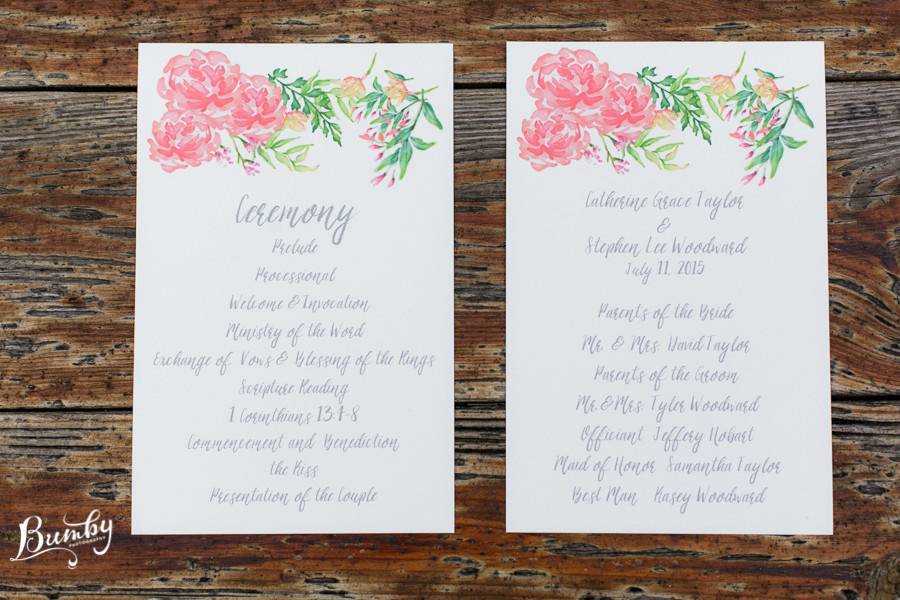 Ceremony
Prelude
Processional
Welcome & Invocation
Ministry of the Word
Exchange of Vows & Blessing of the Rings
Scripture Reading
1 Corinthians 13:4-8
Commencement and Benediction
the Kiss
Presentation of the Couple
Catherine Grace Taylor
&
Stephen Lee Woodward
July 11, 2015
Parents of the Bride
Mr. & Mrs. David Taylor
Parents of the Groom
Mr. & Mrs. Tyler Woodward
Officiant Jeffery Hobart
Maid of Honor Samantha Taylor
Best Man Kasey Woodward
Bumby
PHOTOGRAPHY